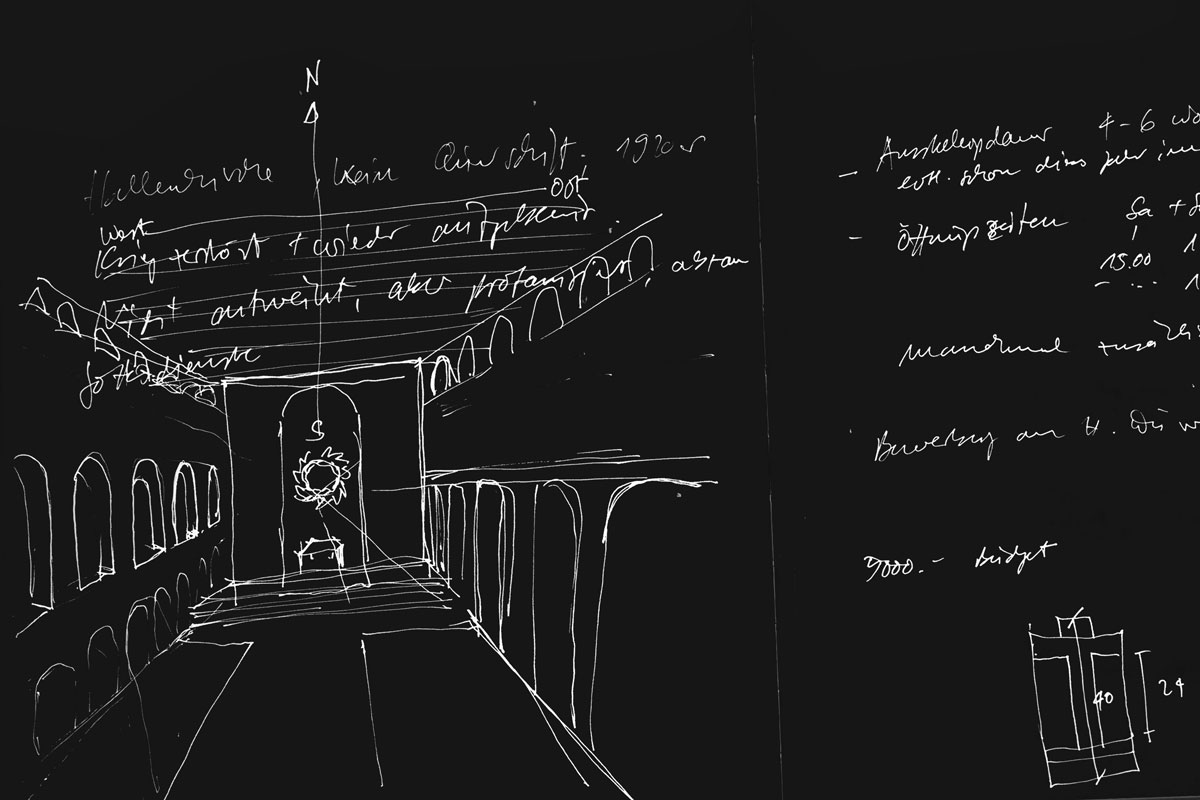 N
Hallenkirche kein Querschiff. 1920er
Ost
West
Krieg zerstört + wieder aufgebaut.
nicht entweiht, aber profanisiert, altar
Gottesdienste
S
- Ausstellungsdauer 4-6 Wo
evtl. schon dieses Jahr im
- Öffnungszeiten Sa + S
15.00 1
- ... 1
Manchmal
Bewerbung an H.
9000.- Budget
40
24